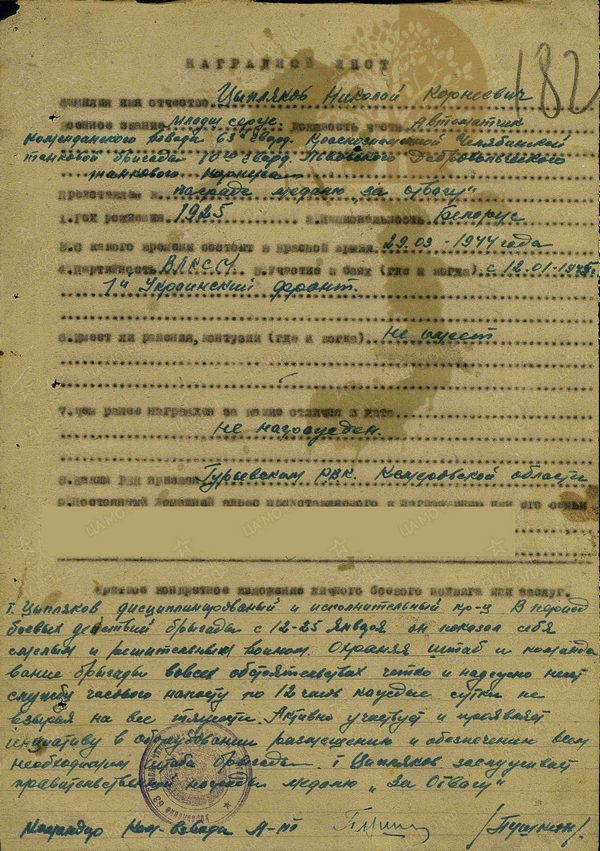 182
НАГРАДНОЙ ЛИСТ
Фамилия имя отчество Цыпляков Николай Корнеевич
Военное звание младш. серж. должность часть Автоматчик
комендантского взвода 63 гвард. Краснознаменной Челябинской
танковой бригады 10го гвард. Львовского Добровольческого
танкового корпуса
Представлен к награде медалью „за отвагу"
1. Год рождения 1925 2. Национальность Белорус
3. С какого времени состоит в Красной армии 29.03-1944 года
4. Партийность ВЛКСМ. 5. Участие в боях (где и когда) с 12.01-1945г.
1й Украинский фронт.
6. Имеет ли ранения, контузии (где и когда) не имеет
7. Чем ранее награжден за какие отличия и дата
не награжден.
8. Каким РВК призван Гурьевским РВК. Кемеровской области
9. Постоянный домашний адрес представляемого к награждению или его семьи
Краткое конкретное изложение личного боевого подвига или заслуг.
т. Цыпляков дисциплинированый и исполнительный кр-ц В период
боевых действий бригады с 12-25 Января он показал себя
смелым и решительным воином. Охраняя штаб и командо
вание бригады вовсех обстоятельствах четко и надежно несет
службу часового напосту по 12 часов каждые сутки не
взирая на все тяжести. Активно участвует и проявляет
инициативу в оборудовании размещению и обеспечении всем
необходимом штаба бригады. т Цыпляков заслуживает
правительственной награды медалью „За Отвагу"
Командир Ком-взвода Л-т /Пушкин/